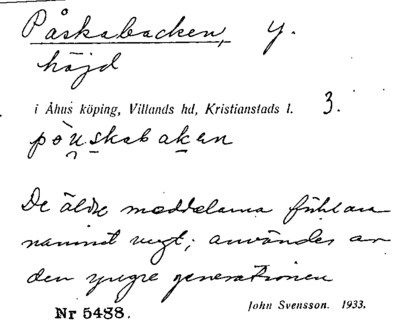 Påskabacken, y.
höjd
i Åhus köping, Villands hd, Kristianstads l. 3.
påuskabaken
De äldre meddelarna
namnet ; användes av
den yngre generationen
Nr 5488. John Svensson. 1933.